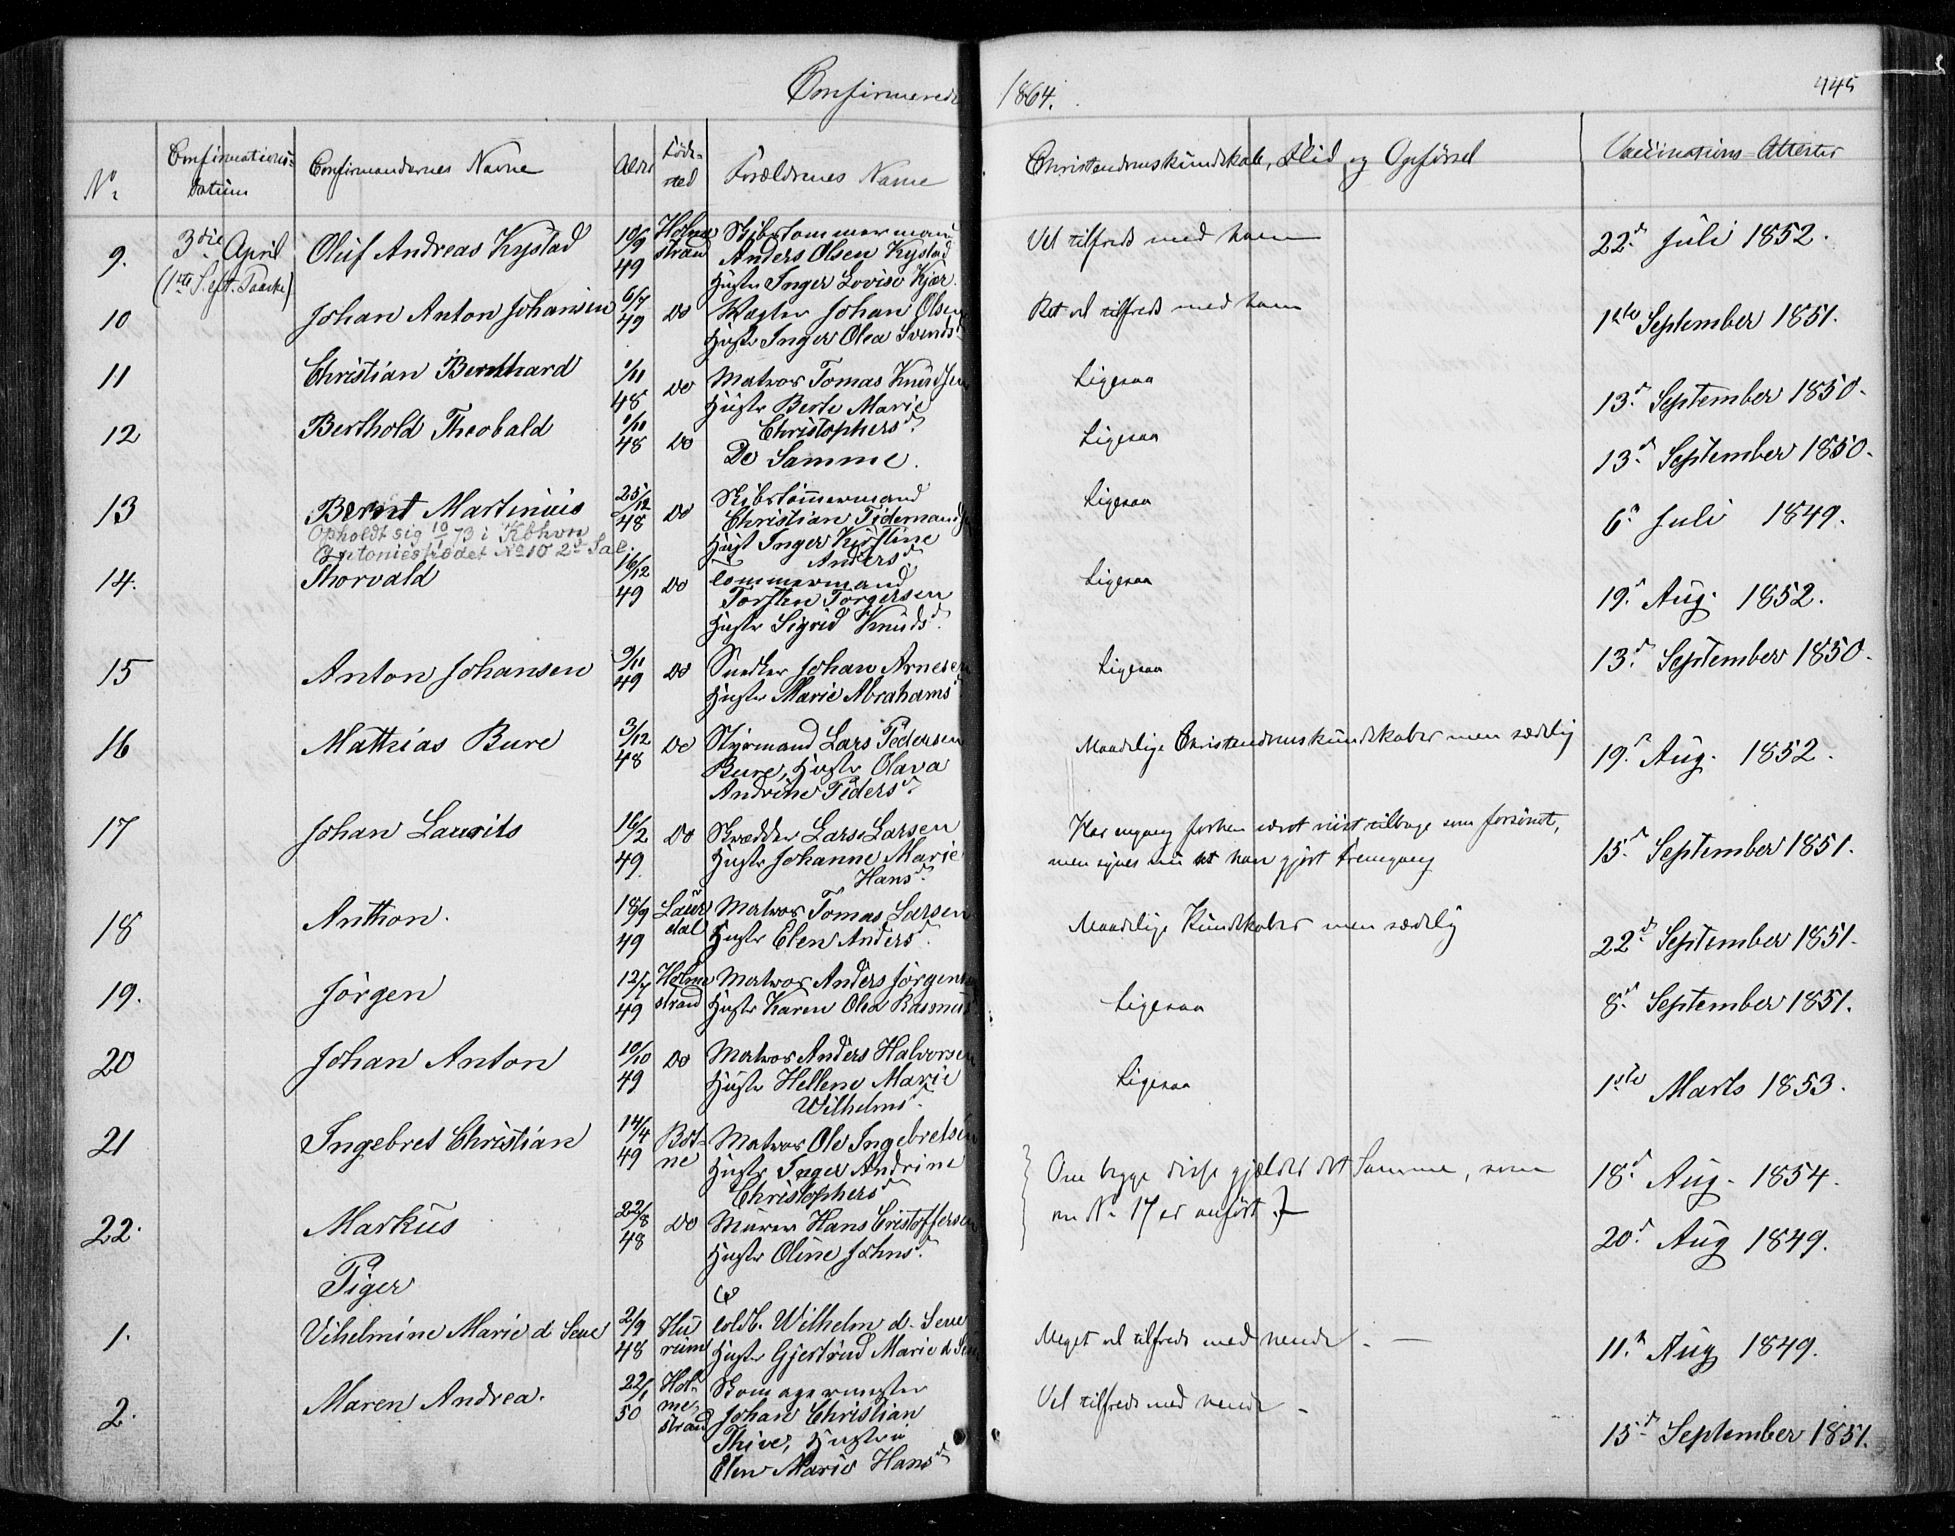 Confirmerede 1864. 445
No. Confirmations-Datum Confirmandernes Navne Alder Fødested Forældrenes Navne Christendomskundskab, Flid og Opførsel Vaccinations-Attester
9. 3die April (1ste S. eft. Paaske) Oluf Andreas Kystad 10/9 49 Holmestrand Skibstømmermand Anders Olsen Kystad Hustr Inger Lovise Kjær. Vel tilfreds med ham 22d. Juli 1852.
10 Johan Anton Johansen 6/7 49 Do Vægter Johan Olsen Hustr Inger Olea Svends Ret vel tilfreds med ham 1ste September 1851.
11 Christian Bernthard 1/11 48 Do Matros Tomas Knudsen Hustr Berte Marie Christophersd. Ligesaa 13d. September 1850.
12 Berthold Theobald 1/11 48 Do De Samme. Ligesaa 13d. September 1850.
13 Bernt Martinius 25/12 48 Do Skibstømmermand Christian Tidemand Hust Inger Kirstine Andersd Ligesaa 6. Juli 1849.
Opholdt sig 10/1 73 i Kbhvn
Antoniestrædet No 10 2d Sal.
14. Thorvald 16/12 49 Do Tømmermand Torsten Torgersen Hustr Sigrid Knudsd. Ligesaa 19. Aug. 1852.
15 Anton Johansen 9/11 49 Do Snedker Johan Arnesen Hustr Marie Abrahamsd Ligesaa 13d. September 1850.
16 Mathias Bure 3/12 48 Do Styrmand Lars Pedersen Bure, Hustr Olava Andrine Pedersd. Maadelige Christendomskundskaber men sædelig 19. Aug. 1852.
17 Johan Laurits 16/2 49 Do Skrædder Lars Larsen Hustr Johanne Marie Hansd. Har engang forhen været viist tilbage som forsømt,
men synes nu at have gjort Fremgang 15d. September 1851.
18 Anthon. 18/9 49 Laurdal Matros Tomas Larsen Hustr Elen Andersd. Maadelige Kundskaber men sædelig 22d. September 1851.
19. Jörgen 12/7 49 Holmestrand Matros Anders Jörgensen Hustr Karen Olea Rasmus Ligesaa 8d. September 1851.
20 Johan Anton 10/10 49 Do Matros Anders Halvorsen Hustr Hellene Marie Wilhelmsd. Ligesaa 1ste Marts 1853.
21 Ingebret Christian 14/4 49 Botne Matros Ole Ingebretsen Hustr Inger Andrine Christophersd Om begge disse gjælder det Samme, som
om No 17 er anført. 18d. Aug. 1854.
22. Markus 22/8 48 Do Murer Hans Cristoffersen Hustr Oline Johnsd. 20d. Aug 1849.
Piger
1. Vilhelmine Marie d Seue 2/9 48 Hurum Toldb. Wilhelm d. Seue Hustr Gjertrud Marie d Seue Meget vel tilfreds med hende. 11. Aug 1849.
2. Maren Andrea. 22/1 50 Holmestrand Skomagermester Johan Christian Thive, Hustru Elen Marie Hansd Vel tilfreds med hende 15d. September 1851.